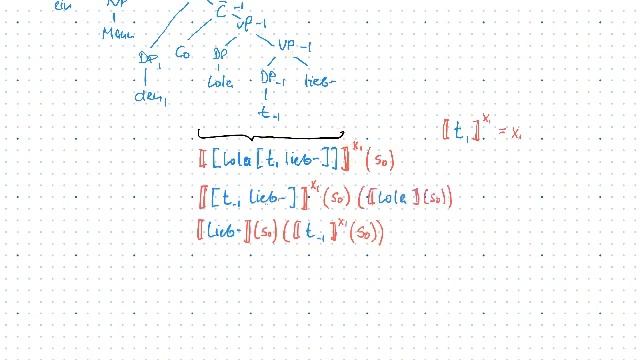 ein NP C̄-1
Mann VP-1
DP1 C0 DP VP-1
den1 Lola DP-1 lieb-
t-1
⟦t1⟧^x1 = x1
⟦[Lola [t1 lieb-]]⟧^x1 (s0)
⟦[t-1 lieb-]⟧^x1 (s0) (⟦Lola⟧(s0))
⟦lieb-⟧(s0) (⟦t-1⟧^x1 (s0))